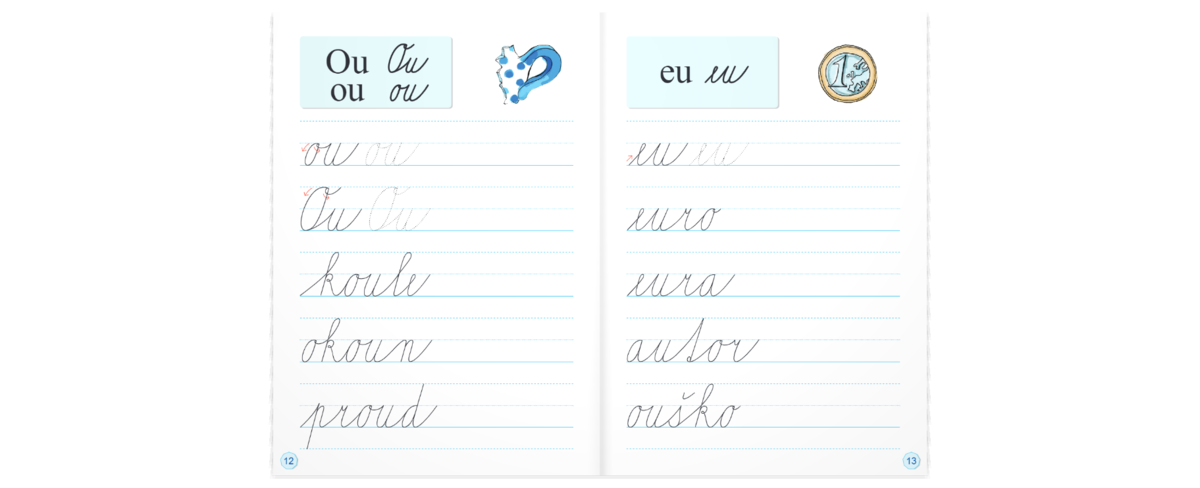 Ou Ou
ou ou
ou ou
Ou Ou
koule
okoun
proud
12
eu eu
1
eu eu
euro
eura
autor
ouško
13